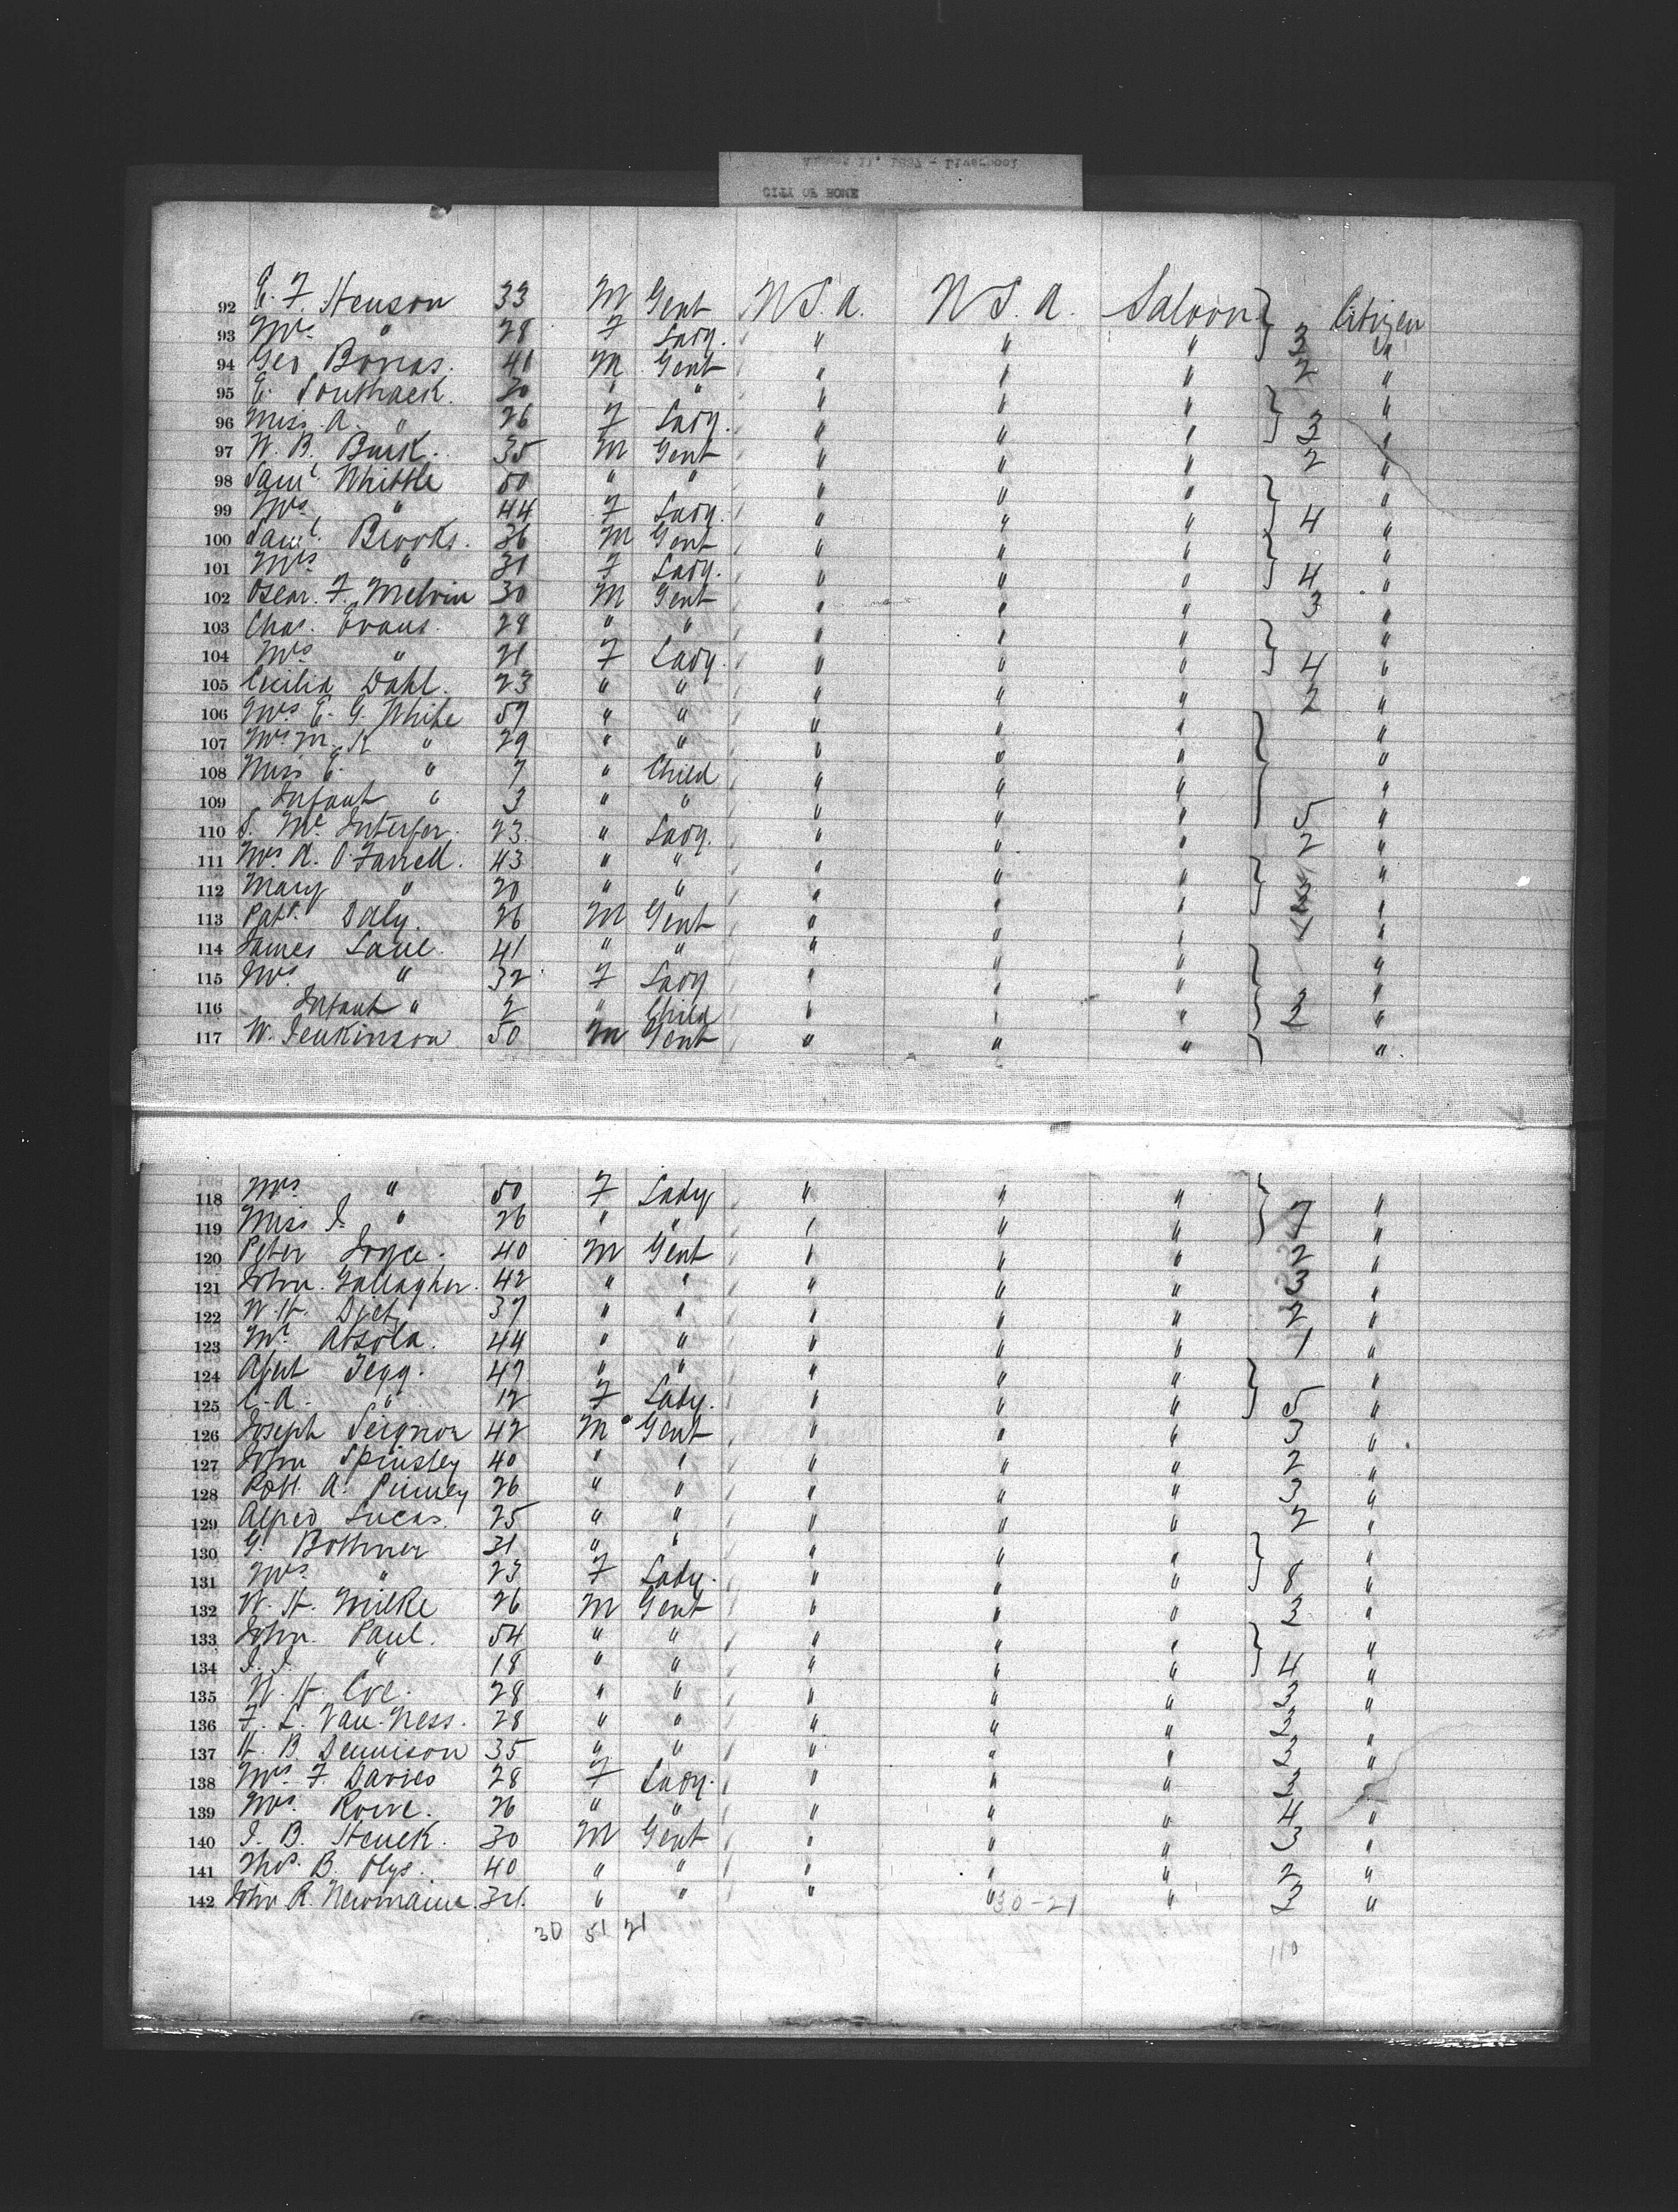 CITY OF ROME
92 E. F. Henson 33 M Gent U.S.A. U.S.A. Saloon } Citizen
93 Mrs " 28 F Lady " " " } 3 "
94 Geo Bonas. 41 M Gent " " " 2 "
95 E. Southack. 30 " " " " " } "
96 Miss A. " 26 F Lady. " " " } 3 "
97 W. B. Burk. 35 M Gent " " " 2 "
98 Saml. Whittle 50 " " " " " } "
99 Mrs " 44 F Lady. " " " } 4 "
100 Saml. Brooks. 36 M Gent " " " } "
101 Mrs " 31 F Lady. " " " } 4 "
102 Oscar. F. Melvin 30 M Gent " " " 3 "
103 Chas. Evans. 28 " " " " " } "
104 Mrs " 21 F Lady. " " " } 4 "
105 Cecilia Dahl. 23 " " " " " 2 "
106 Mrs E. G. White 57 " " " " " } "
107 Mrs M. K " 29 " " " " " } "
108 Miss E. " 7 " Child " " " } "
109 Infant " 3 " " " " " } 5 "
110 S. Mc 23 " Lady. " " " 2 "
111 Mrs A. O'Farrell. 43 " " " " " } "
112 Mary " 20 " " " " " } "
113 Patk. Daly. 26 M Gent " " " "
114 James Lane. 41 " " " " " } "
115 Mrs " 32 F Lady " " " } "
116 Infant " 2 " Child " " " } 3 "
117 W. Jenkinson 50 M Gent " " " } "
118 Mrs " 50 F Lady " " " } "
119 Miss J. " 26 " " " " " } 7 "
120 Peter Joyce. 40 M Gent " " " 2 "
121 John. Gallagher. 42 " " " " " 3 "
122 W. H. 37 " " " " " 2 "
123 Mr. Absola. 44 " " " " " 1 "
124 Tegg. 47 " " " " " } "
125 C. A. " 12 F Lady. " " " } 5 "
126 Joseph Seignor 42 M Gent " " " 3 "
127 John Spinsley 40 " " " " " 2 "
128 Robt. A. Pinney 26 " " " " " 3 "
129 Alfred Lucas. 25 " " " " " 2 "
130 G. Bothner 31 " " " " " } "
131 Mrs " 23 F Lady. " " " } 8 "
132 W. H. Milke 26 M Gent " " " 3 "
133 John. Paul. 54 " " " " " } "
134 J. J. " 18 " " " " " } 4 "
135 W. H. Coe. 28 " " " " " 3 "
136 F. L. Van-Ness. 28 " " " " " 3 "
137 H. B. Dennison 35 " " " " " 3 "
138 Mrs. F. Davies 28 F Lady. " " " 3 "
139 Mrs. Rowe. 26 " " " " " 4 "
140 J. B. Houck. 30 M Gent " " " 3 "
141 Thos. B. 40 " " " " " 2 "
142 John R. Newmaine. 34. " " " " 30-21 " 3 "
30 51 21 110